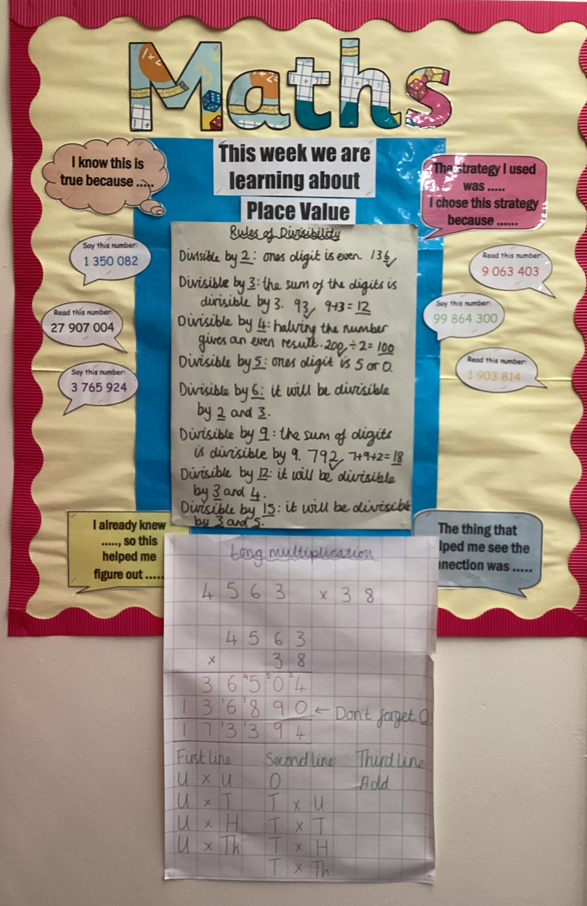 Maths
This week we are
learning about
Place Value
I know this is
true because .....
The strategy I used
was .....
I chose this strategy
because ......
Say this number:
1 350 082
Read this number:
27 907 004
Say this number:
3 765 924
Read this number:
9 063 403
Say this number:
99 864 300
Read this number:
1 903 814
Rules of Divisibility
Divisible by 2: ones digit is even. 136
Divisible by 3: the sum of the digits is
divisible by 3. 93 9+3=12
Divisible by 4: halving the number
gives an even result. 200 ÷ 2 = 100
Divisible by 5: ones digit is 5 or 0.
Divisible by 6: it will be divisible
by 2 and 3.
Divisible by 9: the sum of digits
is divisible by 9. 792 7+9+2=18
Divisible by 12: it will be divisible
by 3 and 4.
Divisible by 15: it will be divisible
by 3 and 5.
I already knew
....., so this
helped me
figure out .....
The thing that
lped me see the
nnection was .....
Long multiplication
4 5 6 3 x 3 8
4 5 6 3
x 3 8
3 6 ⁴5 ⁵0 ²4
1 3 ¹6 ¹8 9 0 ← Don't forget 0
1 7 3 3 9 4
First line Second line Third line
U x U 0 Add
U x T T x U
U x H T x T
U x Th T x H
T x Th